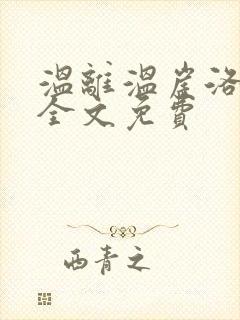 温離温崖洛
全文免費
西青之